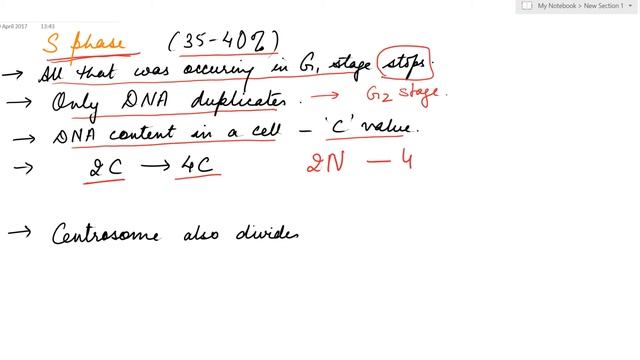 My Notebook > New Section 1
April 2017 13:43
S phase (35-40%)
→ All that was occuring in G1 stage stops.
→ Only DNA duplicates. → G2 stage.
→ DNA content in a cell – 'C' value.
→ 2C → 4C 2N — 4
→ Centrosome also divides